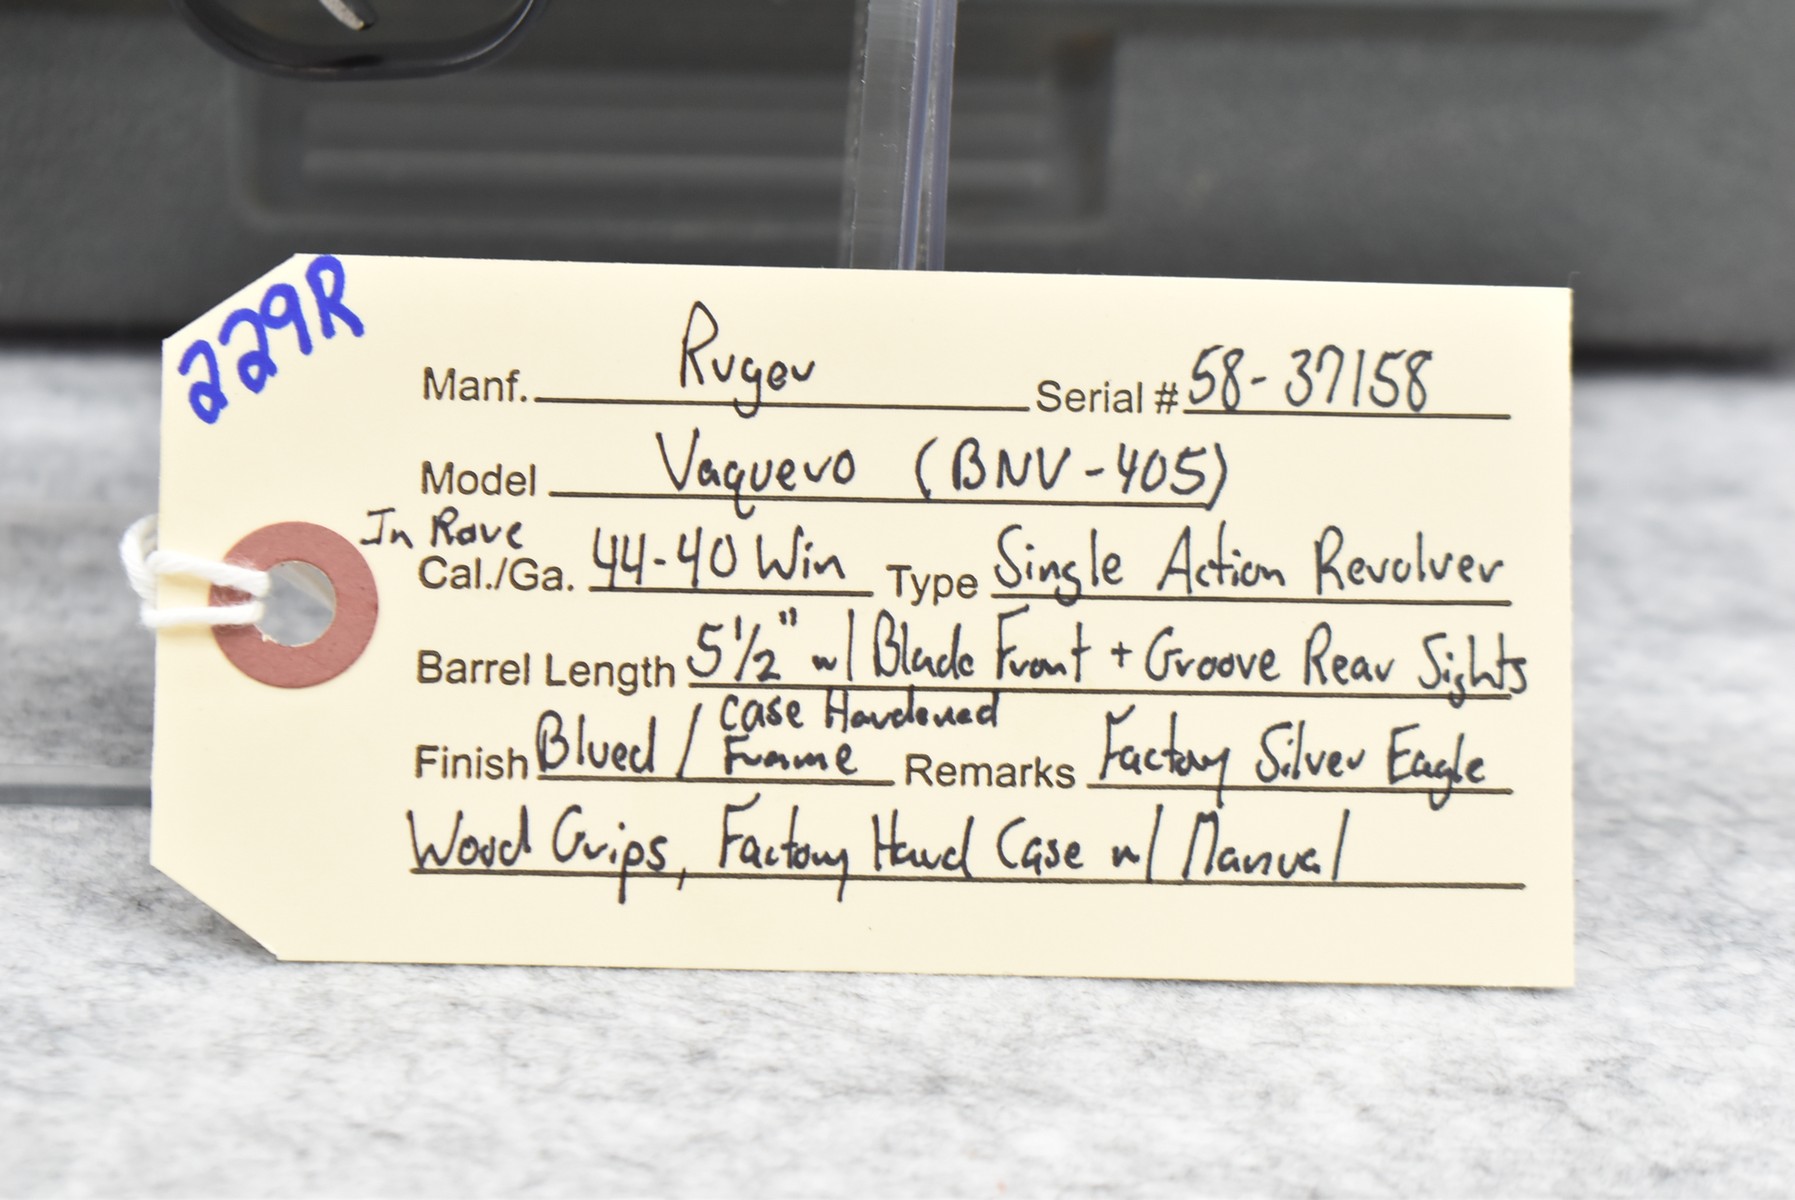 229R
Manf. Ruger Serial # 58-37158
Model Vaquero (BNV-405)
In Rare
Cal./Ga. 44-40 Win Type Single Action Revolver
Barrel Length 5 1/2" w/ Blade Front + Groove Rear Sights
Finish Blued / Case Hardened Frame Remarks Factory Silver Eagle
Wood Grips, Factory Hard Case w/ Manual